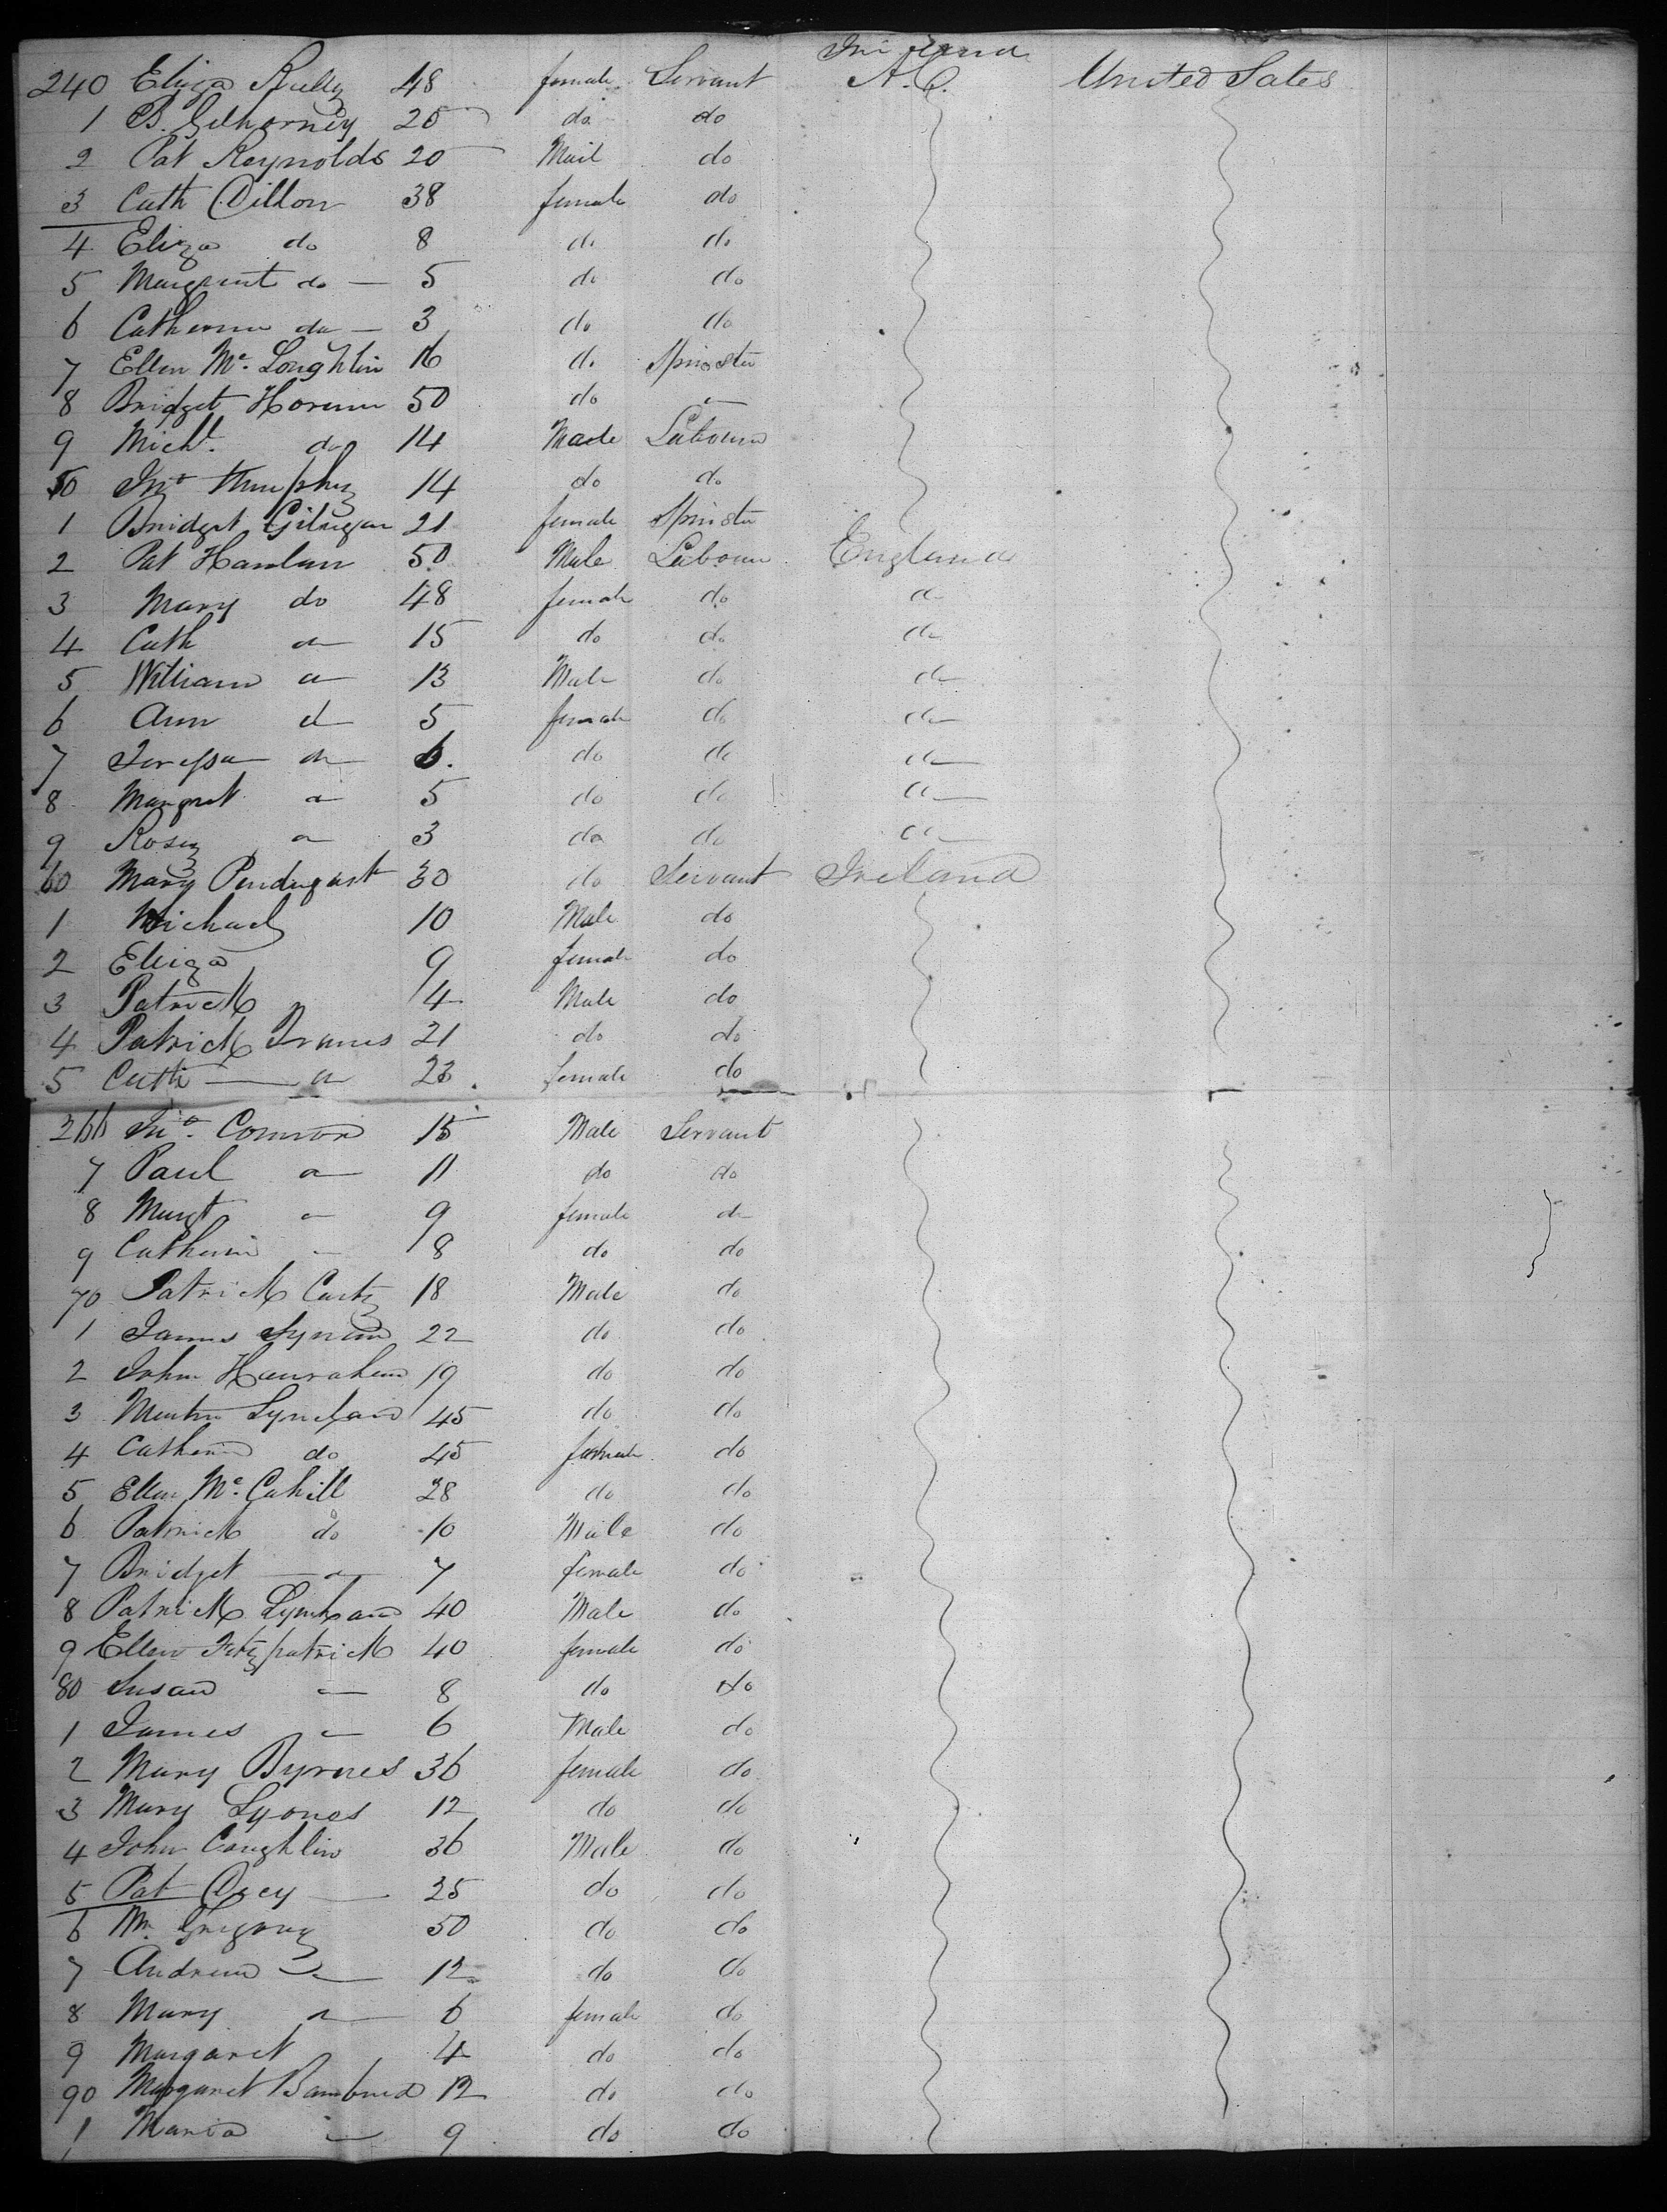 Ireland
240 Eliza Reilly 48 female Servant A.C. United Sates
1 B. Gilhorney 25 do do
2 Pat Reynolds 20 Mail do
3 Cath Dillon 38 female do
4 Eliza do 8 do do
5 Margreat do — 5 do do
6 Catherine do — 3 do do
7 Ellen Mc. Loughlin 16 do Spinster
8 Bridget Horenn 50 do do
9 Michl. do 14 Male Labourer
50 Jno Murphy 14 do do
1 Bridget Gilligan 21 female Spinster
2 Pat Hanlan 50 Male Labour England
3 Mary do 48 female do do
4 Cath do 15 do do do
5 William do 13 Male do do
6 Ann do 5 female do do
7 Teressa do 6. do do do
8 Margret do 5 do do do
9 Rosey do 3 do do do
60 Mary Pendergast 30 do Servant Ireland
1 Michael 10 Male do
2 Eliza 9 female do
3 Patrick 4 Male do
4 Patrick Francis 21 do do
5 Cath — do 23 female do
266 Jno. Connor 15 Male Servant
7 Paul do 11 do do
8 Margt do 9 female do
9 Catherin — 8 do do
70 Patrick Carty 18 Male do
1 James 22 do do
2 John Hanrahan 19 do do
3 Martin 45 do do
4 Catherin do 45 female do
5 Ellen Mc. Cahill 28 do do
6 Patrick do 10 Male do
7 Bridget do 7 female do
8 Patrick 40 Male do
9 Ellen Fitzpatrick 40 female do
80 Susan — 8 do do
1 James do 6 Male do
2 Mary Byrnes 36 female do
3 Mary Lyones 12 do do
4 John Coughlin 36 Male do
5 Pat — 25 do do
6 Wm. Gregory 50 do do
7 Andrew do 12 do do
8 Mary do 6 female do
9 Margaret 4 do do
90 Margaret 12 do do
1 Maria do 9 do do